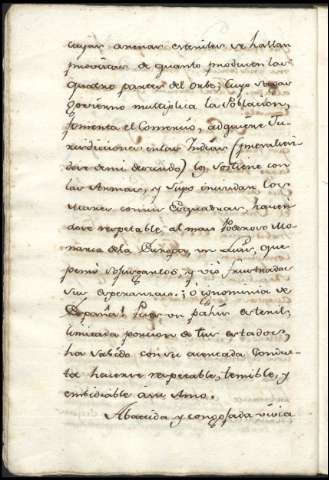 cuyas arenas esteriles se hallan
provistas de quanto producen las
quatro partes del orbe; cuyo vegas
govierno multiplica la Poblacion,
fomenta el Comercio, adquiere Ju-
risdiciones en las Indias (prevalien
dose de mi descuido) los sostiene con
las Armas, y supo inundar los
Mares con sus Esquadras, hacien
dose respetable al mas Poderoso Mo-
narca de la Europa, un Luis, que
pensó sojuzgarlos, y vió frustradas
sus esperanzas. ¡O ignominia de
España! Pues un pahis esteril,
limitada porcion de tus estados,
ha sabido con su arreglada Conduc-
ta hacerse respetable, temible, y
embidiable a su Amo.
Abatida y congojada vivia